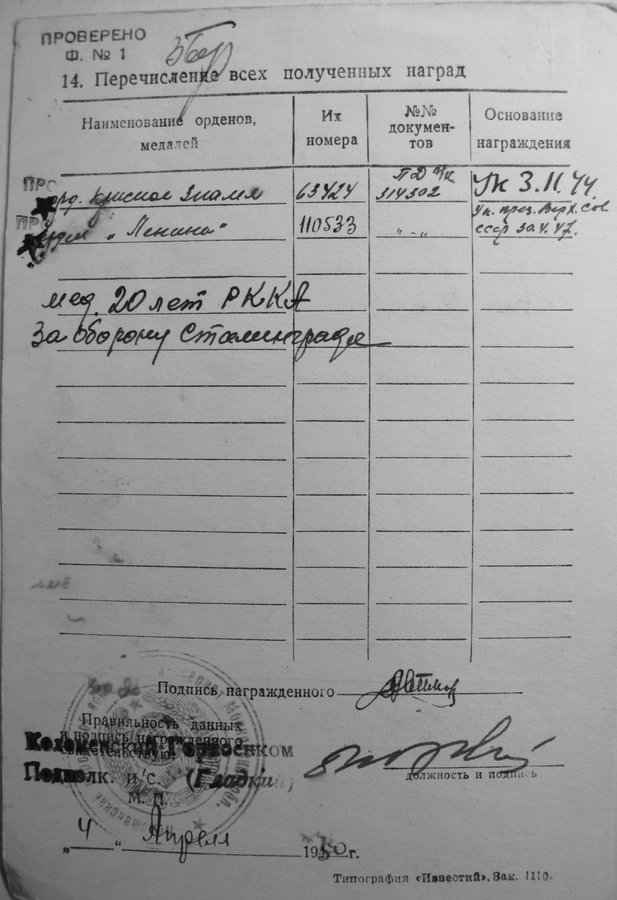 ПРОВЕРЕНО
Ф. № 1
14. Перечисление всех полученных наград
Наименование орденов, медалей
Их номера
№№ документов
Основание награждения
орд. Красное Знамя 63424 314302 Ук 3.11.44
Орден „Ленина" 110533 „-„ Ук. през. Верх. Сов.
СССР за 4. 47.
мед. 20 лет РККА
За оборону Сталинграда
Подпись награжденного
Правильность данных
и подпись награжденного
свидетельствую:
Коломенский Горвоенком
Подполк. и/с. (Гладкий)
М. П.
должность и подпись
„4" Апреля 1950г.
Типография «Известий». Зак. 1110.